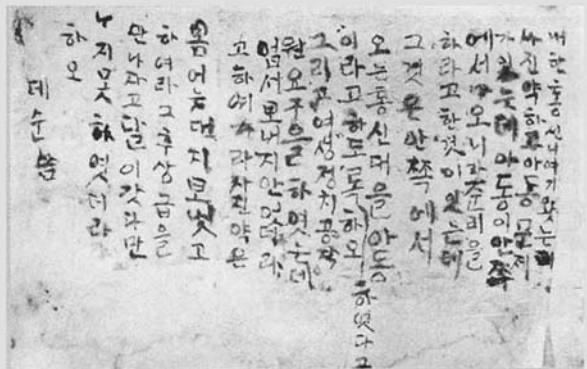 여기왓는데
사진약하고아동문제
가잇는데아동이안쪽
에서나오니라준비를
하라고한것이잇는데
그것은안쪽에서
오는통신대을아동
이라고하도록하오 하엿다고
그리고여성정치공작
원요구을하엿는데
업서보내지안
고하여 라사진약은
어는대지모냇고
하여라그후상급을
만나자고달이갓다만
누지못하엿더라
하오
데순씀